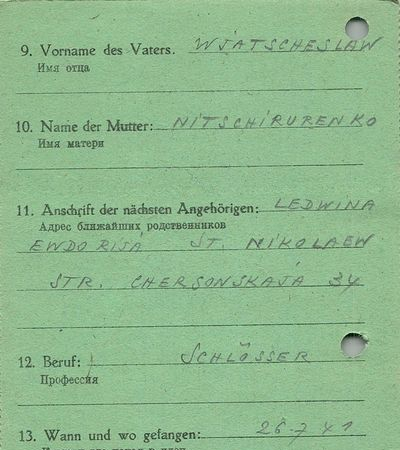 9. Vorname des Vaters. WJATSCHESLAW
Имя отца
10. Name der Mutter: NITSCHIRURENKO
Имя матери
11. Anschrift der nächsten Angehörigen: LEDWINA
Адрес ближайших родственников
EWDORIJA ST. NIKOLAEW
STR. CHERSONSKAJA 34
12. Beruf: SCHLÖSSER
Профессия
13. Wann und wo gefangen: 26-7 41